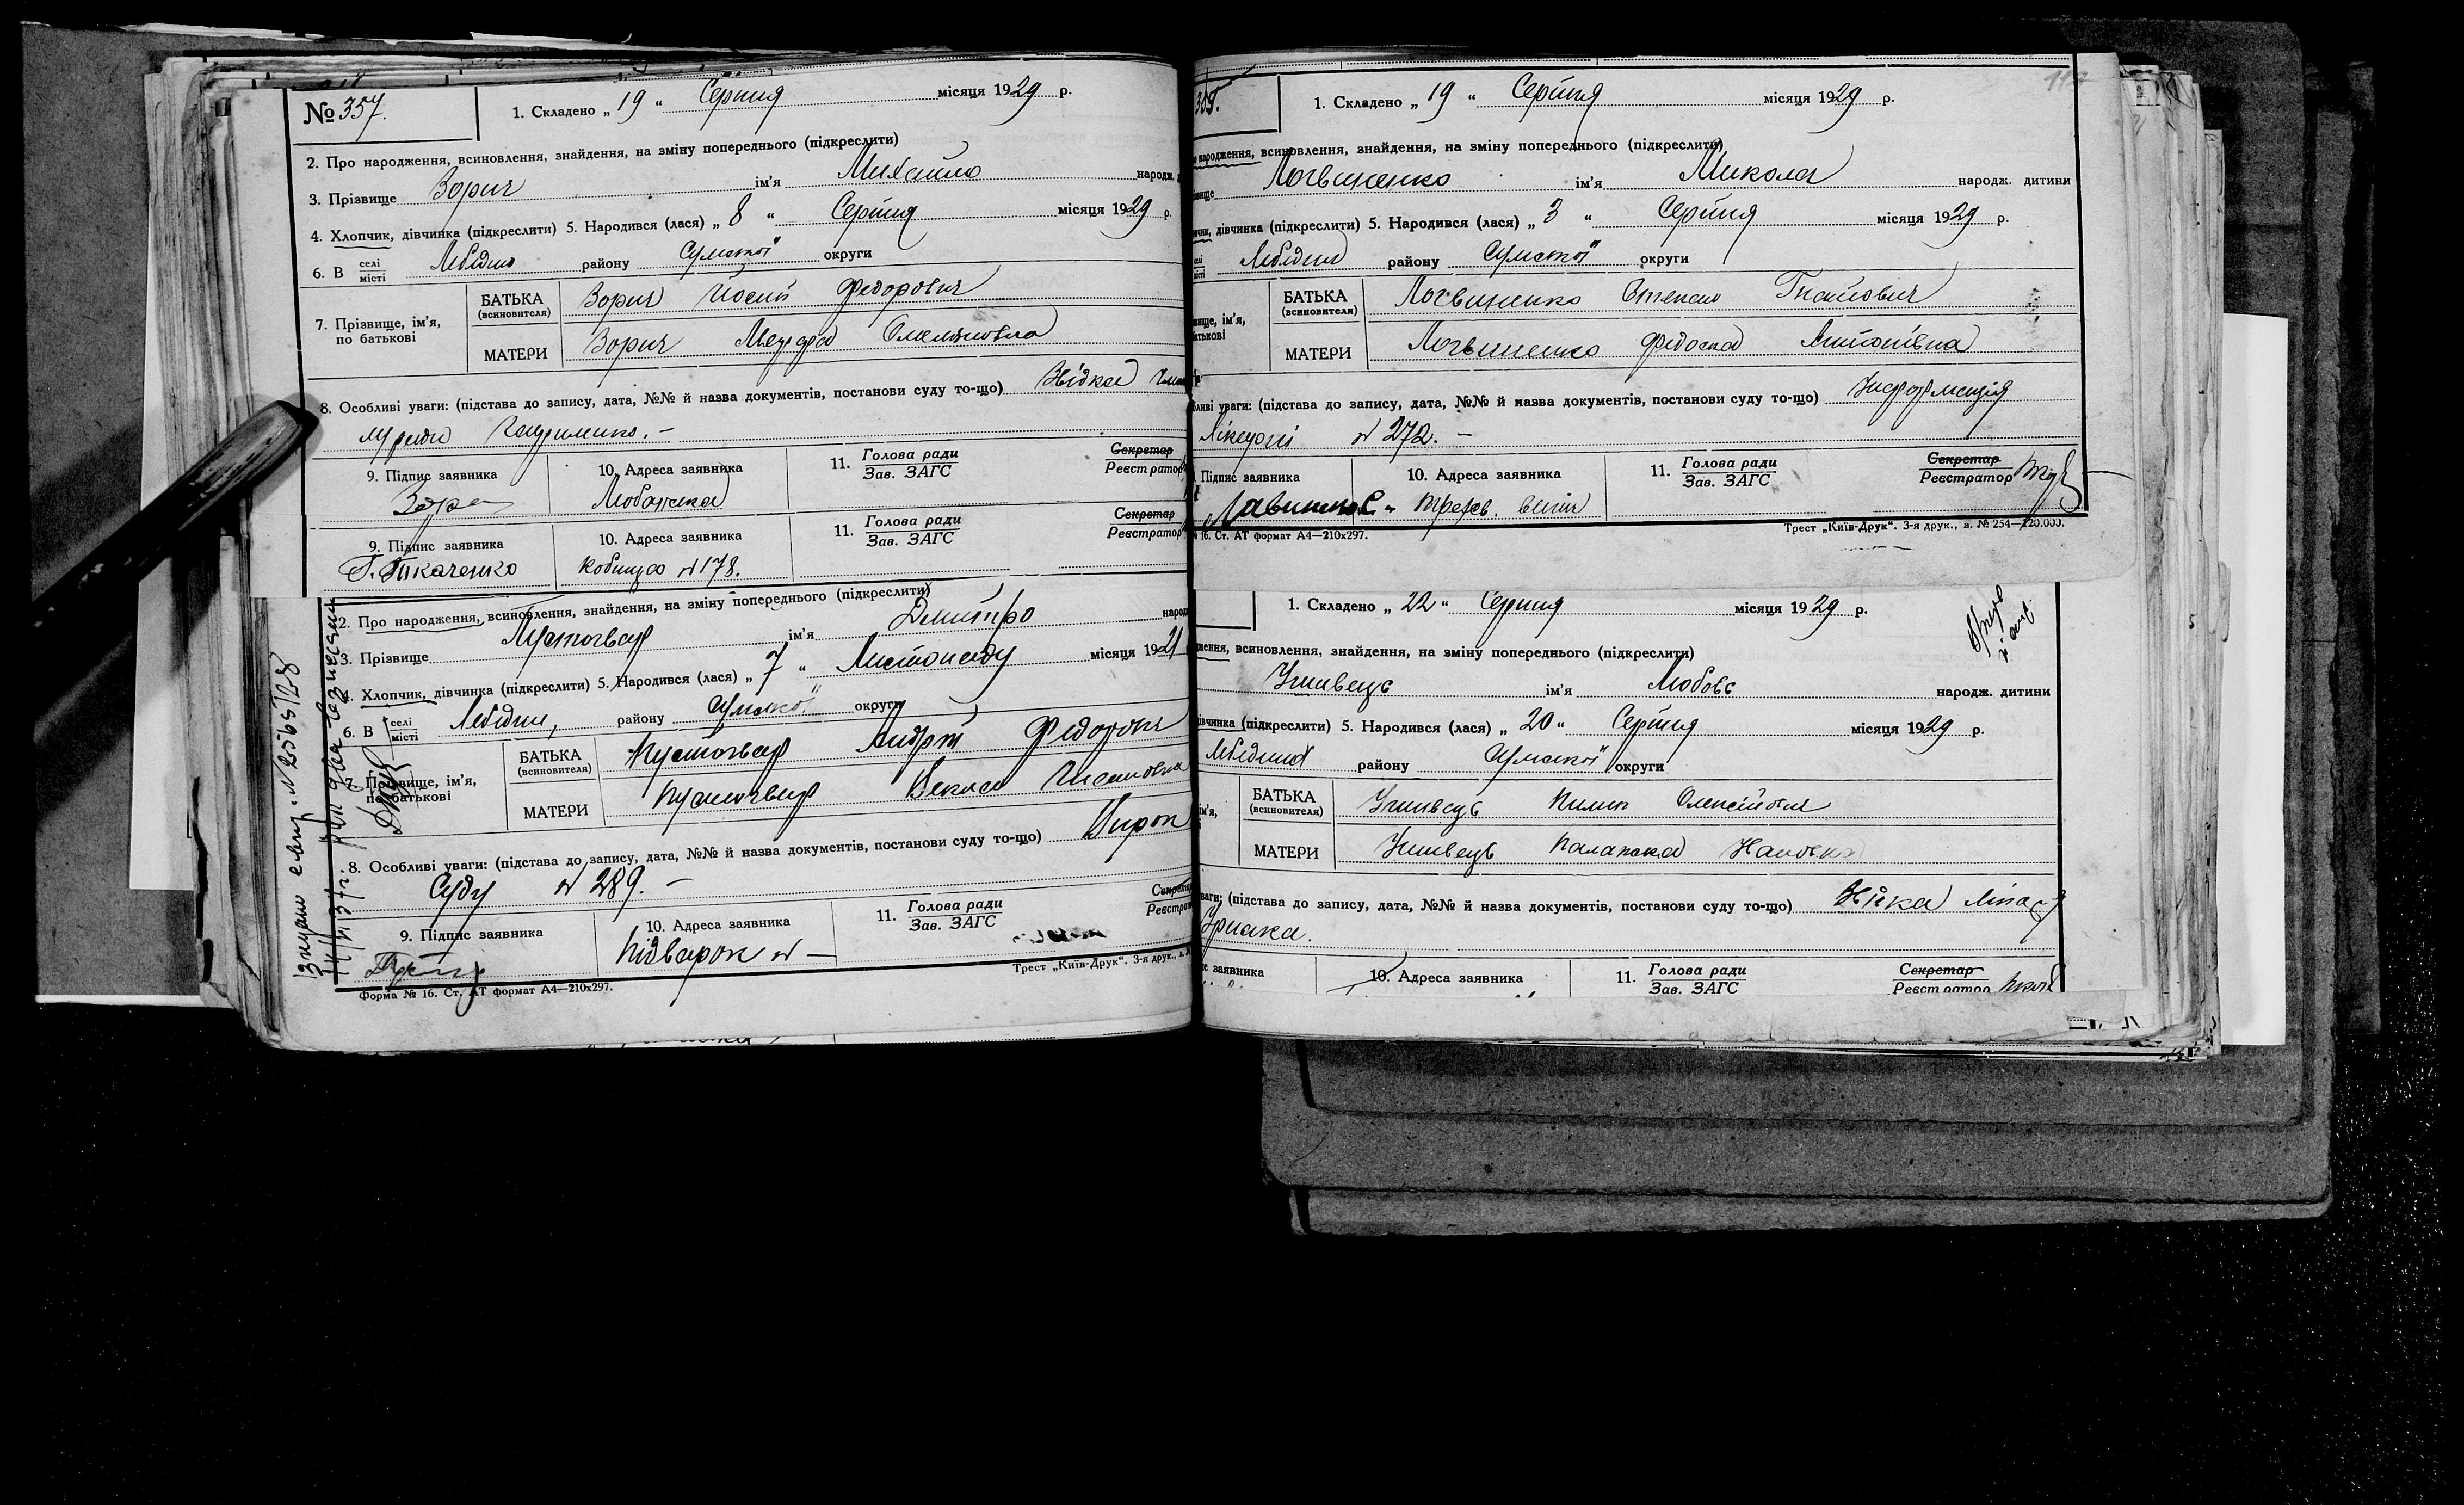 № 357. 1. Складено „ 19 “ Серпня місяця 1929 р.
2. Про народження, всиновлення, знайдення, на зміну попереднього (підкреслити)
3. Прізвище Зорич ім'я Михайло народж.
4. Хлопчик, дівчинка (підкреслити) 5. Народився (лася) „ 8 “ Серпня місяця 1929 р.
6. В селі місті Лебедин району Сумської округи
7. Прізвище, ім'я, по батькові
БАТЬКА (всиновителя) Зорич Йосип Федорович
МАТЕРИ Зорич Омелянівна
8. Особливі уваги: (підстава до запису, дата, №№ й назва документів, постанови суду то-що)
9. Підпис заявника 10. Адреса заявника 11. Голова ради Зав. ЗАГС Секретар Реєстратор
9. Підпис заявника 10. Адреса заявника 11. Голова ради Зав. ЗАГС Секретар Реєстратор
Г. Ткаченко Кобища № 178.
2. Про народження, всиновлення, знайдення, на зміну попереднього (підкреслити)
3. Прізвище Пустогвар ім'я Дмитро народ
4. Хлопчик, дівчинка (підкреслити) 5. Народився (лася) „ 7 “ Листопаду місяця 1921
6. В селі місті Лебедин, району Сумської округи
7. Прізвище, ім'я, по батькові
БАТЬКА (всиновителя) Пустогвар Андрій Федорович
МАТЕРИ Пустогвар Текля
8. Особливі уваги: (підстава до запису, дата, №№ й назва документів, постанови суду то-що) Вирок
Суду № 289. –
9. Підпис заявника 10. Адреса заявника 11. Голова ради Зав. ЗАГС Секретар Реєстрат
Підварок № –
Форма № 16. Ст. АТ формат А4—210х297. Трест „Київ-Друк“. 3-я друк., з.
1. Складено „ 19 “ Серпня місяця 1929 р.
народження, всиновлення, знайдення, на зміну попереднього (підкреслити)
Логвиненко ім'я Микола народж. дитини
дівчинка (підкреслити) 5. Народився (лася) „ 3 “ Серпня місяця 1929 р.
Лебедин району Сумської округи
БАТЬКА (всиновителя) Логвиненко Степан Гнатович
МАТЕРИ Логвиненко Федоска Антонівна
уваги: (підстава до запису, дата, №№ й назва документів, постанови суду то-що) Інформація
Лікарні № 272. –
Підпис заявника 10. Адреса заявника 11. Голова ради Зав. ЗАГС Секретар Реєстратор
16. Ст. АТ формат А4—210х297. Трест „Київ-Друк“. 3-я друк., з. № 254—120.000.
1. Складено „ 22 “ Серпня місяця 1929 р.
всиновлення, знайдення, на зміну попереднього (підкреслити)
Ушивець ім'я Любовь народж. дитини
дівчинка (підкреслити) 5. Народився (лася) „ 20 “ Серпня місяця 1929 р.
Лебедин району Сумської округи
БАТЬКА (всиновителя) Ушивець Пилип Олексійович
МАТЕРИ Ушивець Палажка
уваги: (підстава до запису, дата, №№ й назва документів, постанови суду то-що)
заявника 10. Адреса заявника 11. Голова ради Зав. ЗАГС Секретар Реєстратор